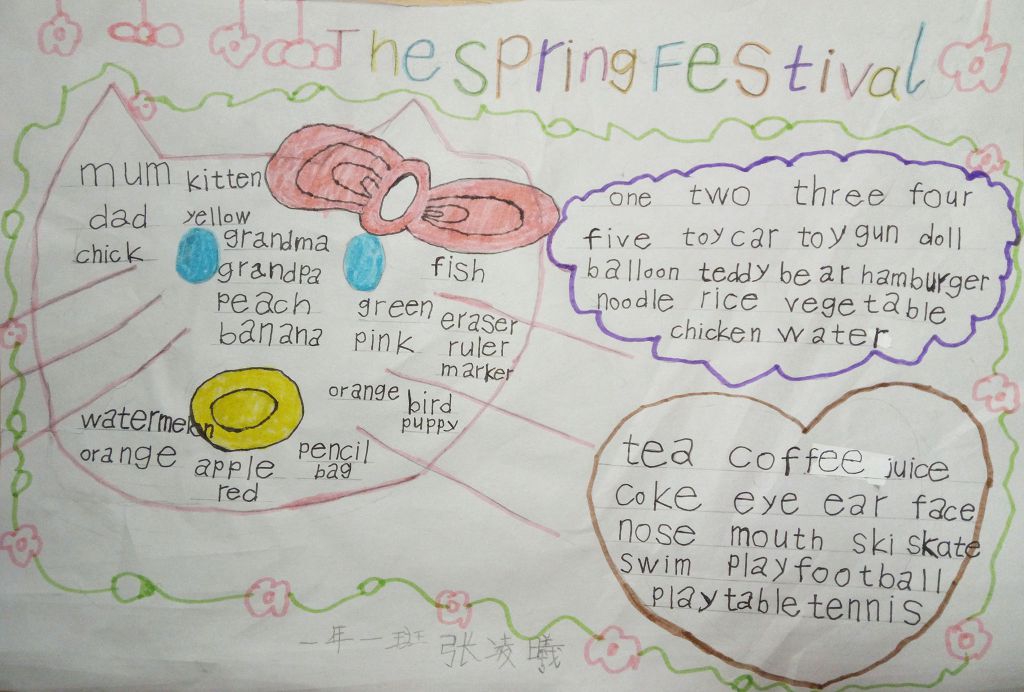 The Spring Festival
mum kitten
dad yellow
chick grandma
grandpa fish
peach green eraser
banana pink ruler
marker
orange bird
puppy
watermelon
orange apple pencil
bag
red
one two three four
five toy car toy gun doll
balloon teddy bear hamburger
noodle rice vegetable
chicken water
tea coffee juice
coke eye ear face
nose mouth ski skate
swim play football
play table tennis
一年一班 张凌曦